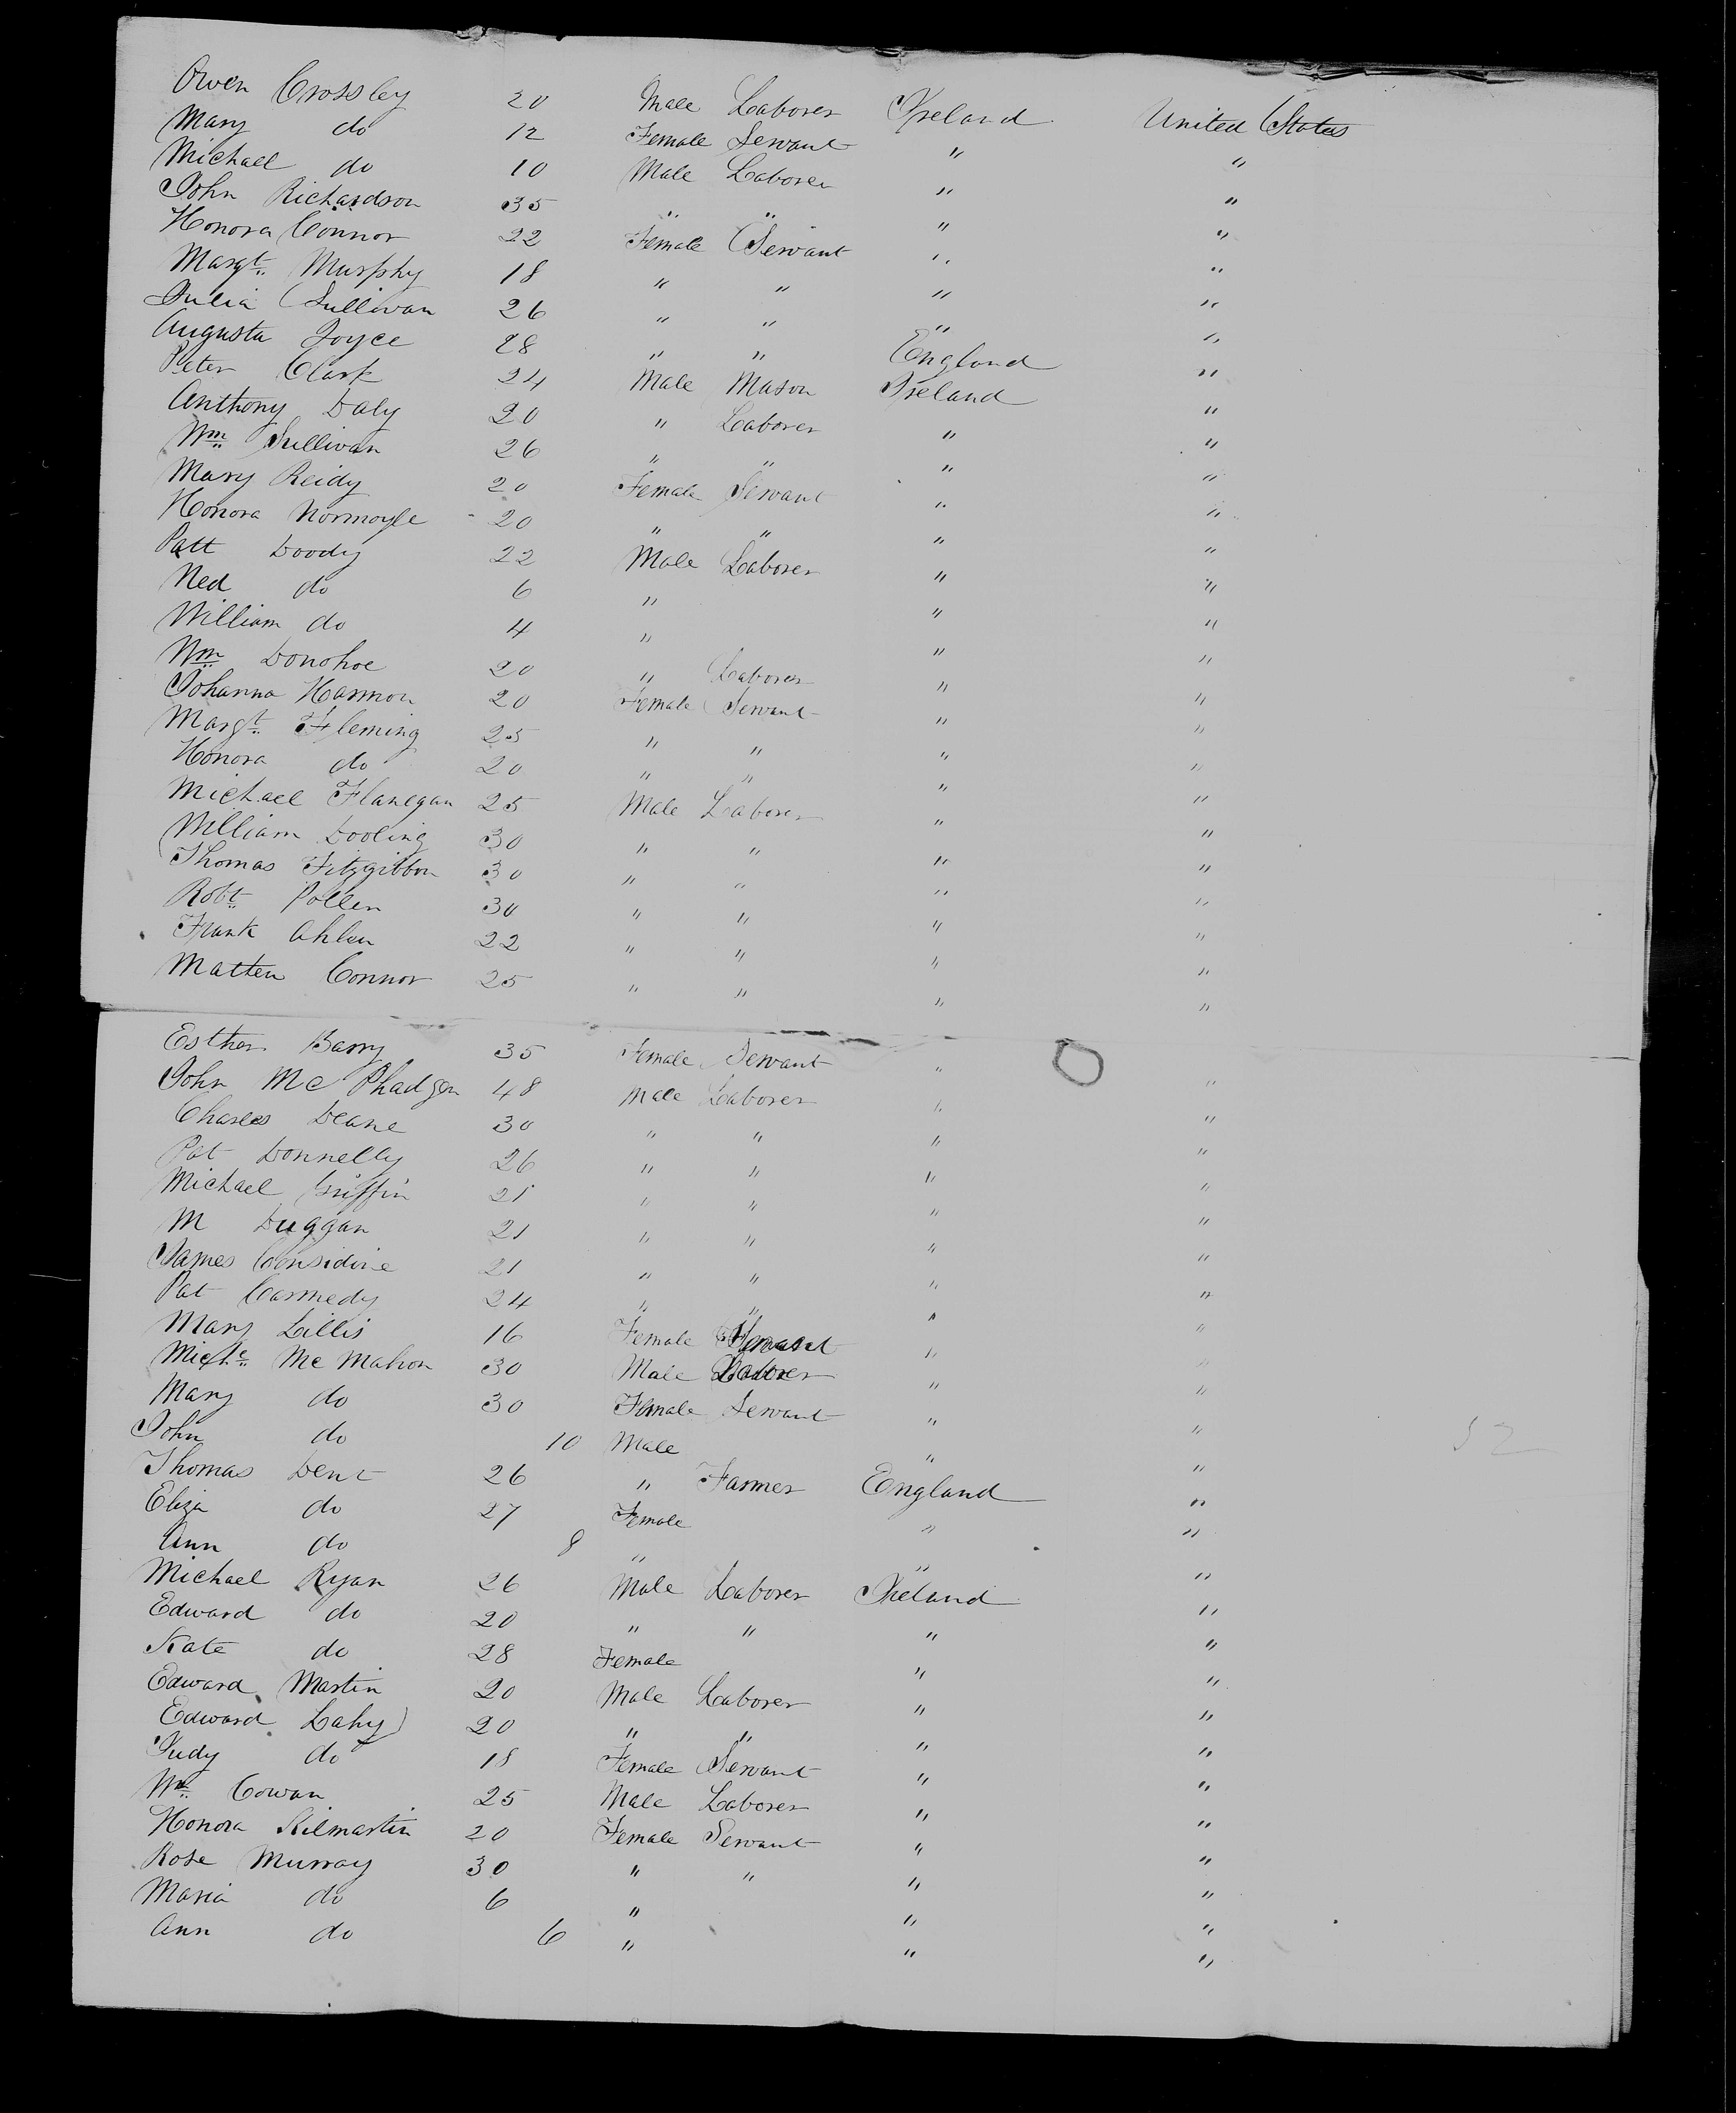 Owen Crossley 20 Male Laborer Ireland United States
Mary do 12 Female Servant " "
Michael do 10 Male Laborer " "
John Richardson 35 " " " "
Honora Connor 22 Female Servant " "
Margt Murphy 18 " " " "
Julia Sullivan 26 " " " "
Augusta Joyce 28 " " England "
Peter Clark 24 Male Mason Ireland "
Anthony Daly 20 " Laborer " "
Wm Sullivan 26 " " " "
Mary Reidy 20 Female Servant " "
Honora Normoyle 20 " " " "
Patt Doody 22 Male Laborer " "
Ned do 6 " " "
William do 4 " " "
Wm Donohoe 20 " Laborer " "
Johanna Harmon 20 Female Servant " "
Margt Fleming 25 " " " "
Honora do 20 " " " "
Michael Flanegan 25 Male Laborer " "
William Dooling 30 " " " "
Thomas Fitzgibbon 30 " " " "
Robt Pollen 30 " " " "
Frank 22 " " " "
Matten Connor 25 " " " "
Esther Barry 35 Female Servant " "
John Mc Phadgen 48 Male Laborer " "
Charles Deane 30 " " " "
Pat Donnelly 26 " " " "
Michael Griffin 21 " " " "
M Duggan 21 " " " "
James Considine 21 " " " "
Pat Carmedy 24 " " " "
Mary Lillis 16 Female Servant " "
Michl Mc Mahon 30 Male Laborer " "
Mary do 30 Female Servant " "
John do 10 Male " "
52
Thomas Dent 26 " Farmer England "
Eliza do 27 Female " "
Ann do 8 " " "
Michael Ryan 26 Male Laborer Ireland "
Edward do 20 " " " "
Kate do 28 Female " "
Edward Martin 20 Male Laborer " "
Edward Lahy 20 " " " "
Judy do 18 Female Servant " "
Wm Cowan 25 Male Laborer " "
Honora Kilmartin 20 Female Servant " "
Rose Murray 30 " " " "
Maria do 6 " " "
Ann do 6 " " "